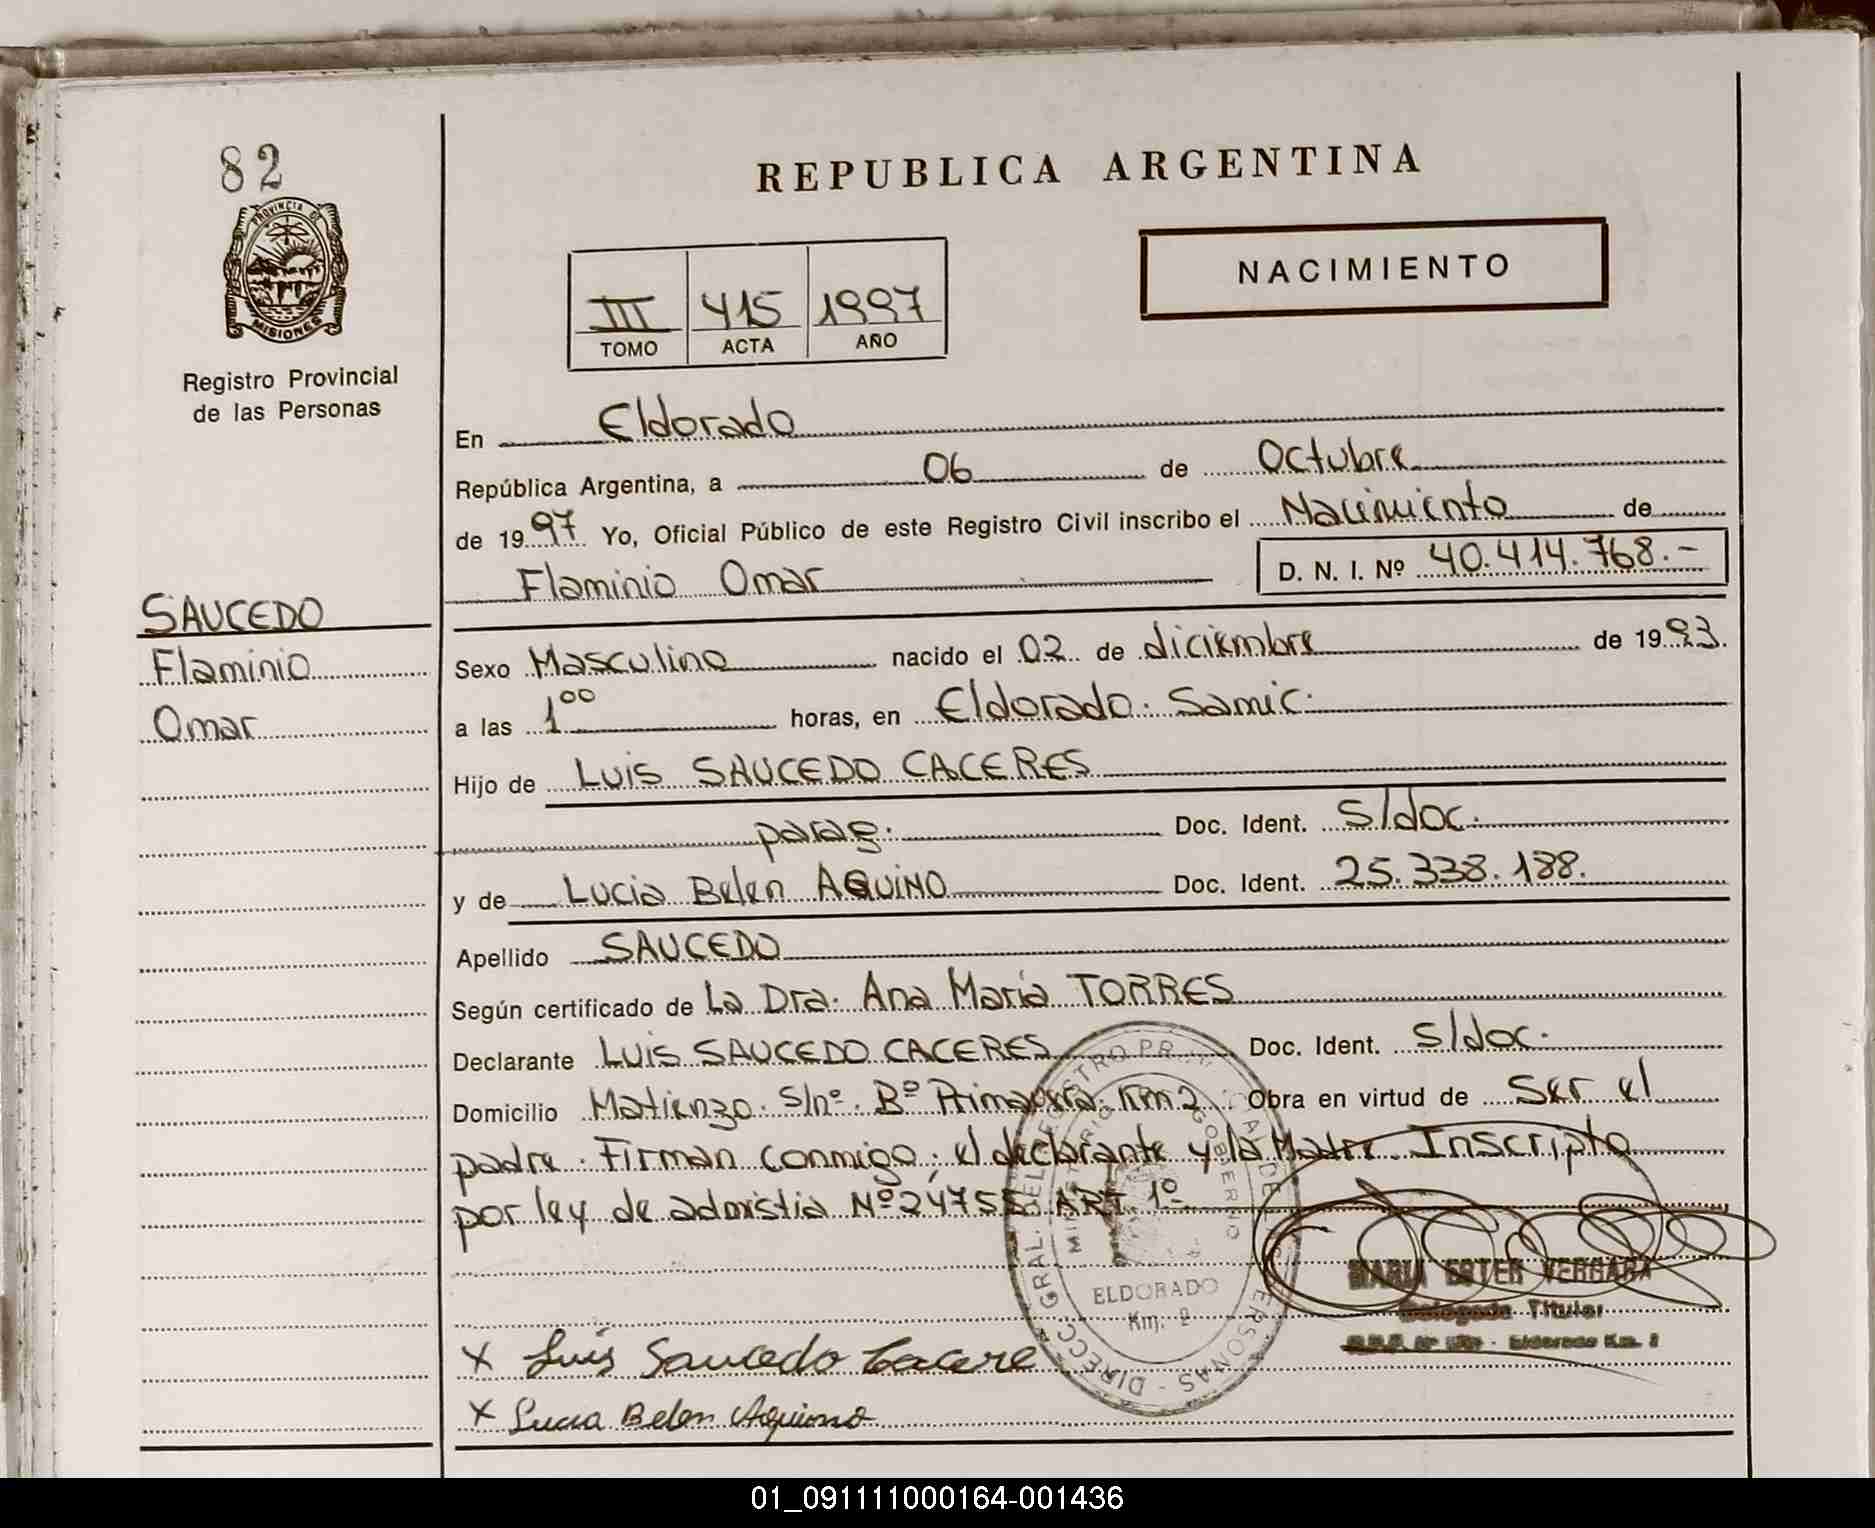 82
PROVINCIA DE
MISIONES
Registro Provincial
de las Personas
SAUCEDO
Flaminio
Omar
REPUBLICA ARGENTINA
NACIMIENTO
III 415 1997
TOMO ACTA AÑO
En Eldorado
República Argentina, a 06 de Octubre
de 1997 Yo, Oficial Público de este Registro Civil inscribo el Nacimiento de
Flaminio Omar D. N. I. Nº 40.414.768.-
Sexo Masculino nacido el 02 de diciembre de 1993.
a las 1⁰⁰ horas, en Eldorado. Samic.
Hijo de LUIS SAUCEDO CACERES
parag. Doc. Ident. S/doc.
y de Lucia Belen AQUINO Doc. Ident. 25.338.188.
Apellido SAUCEDO
Según certificado de La Dra. Ana María TORRES
Declarante LUIS SAUCEDO CACERES Doc. Ident. S/doc.
Domicilio Matienzo. S/nº. Bº Primavera. Km 2 Obra en virtud de Ser el
padre. Firman conmigo; el declarante y la Madre. Inscripto
por ley de admistia Nº 24755 ART. 1º
MARIA ESTER VERGARA
Delegada Titular
Eldorado Km. 2
DIRECC. GRAL. DEL REGISTRO PR DE PERSONAS
MINISTERIO GOBIERNO
ELDORADO
Km. 2
X Luis Saucedo Cacere
X Lucia Belen Aquino
01_091111000164-001436